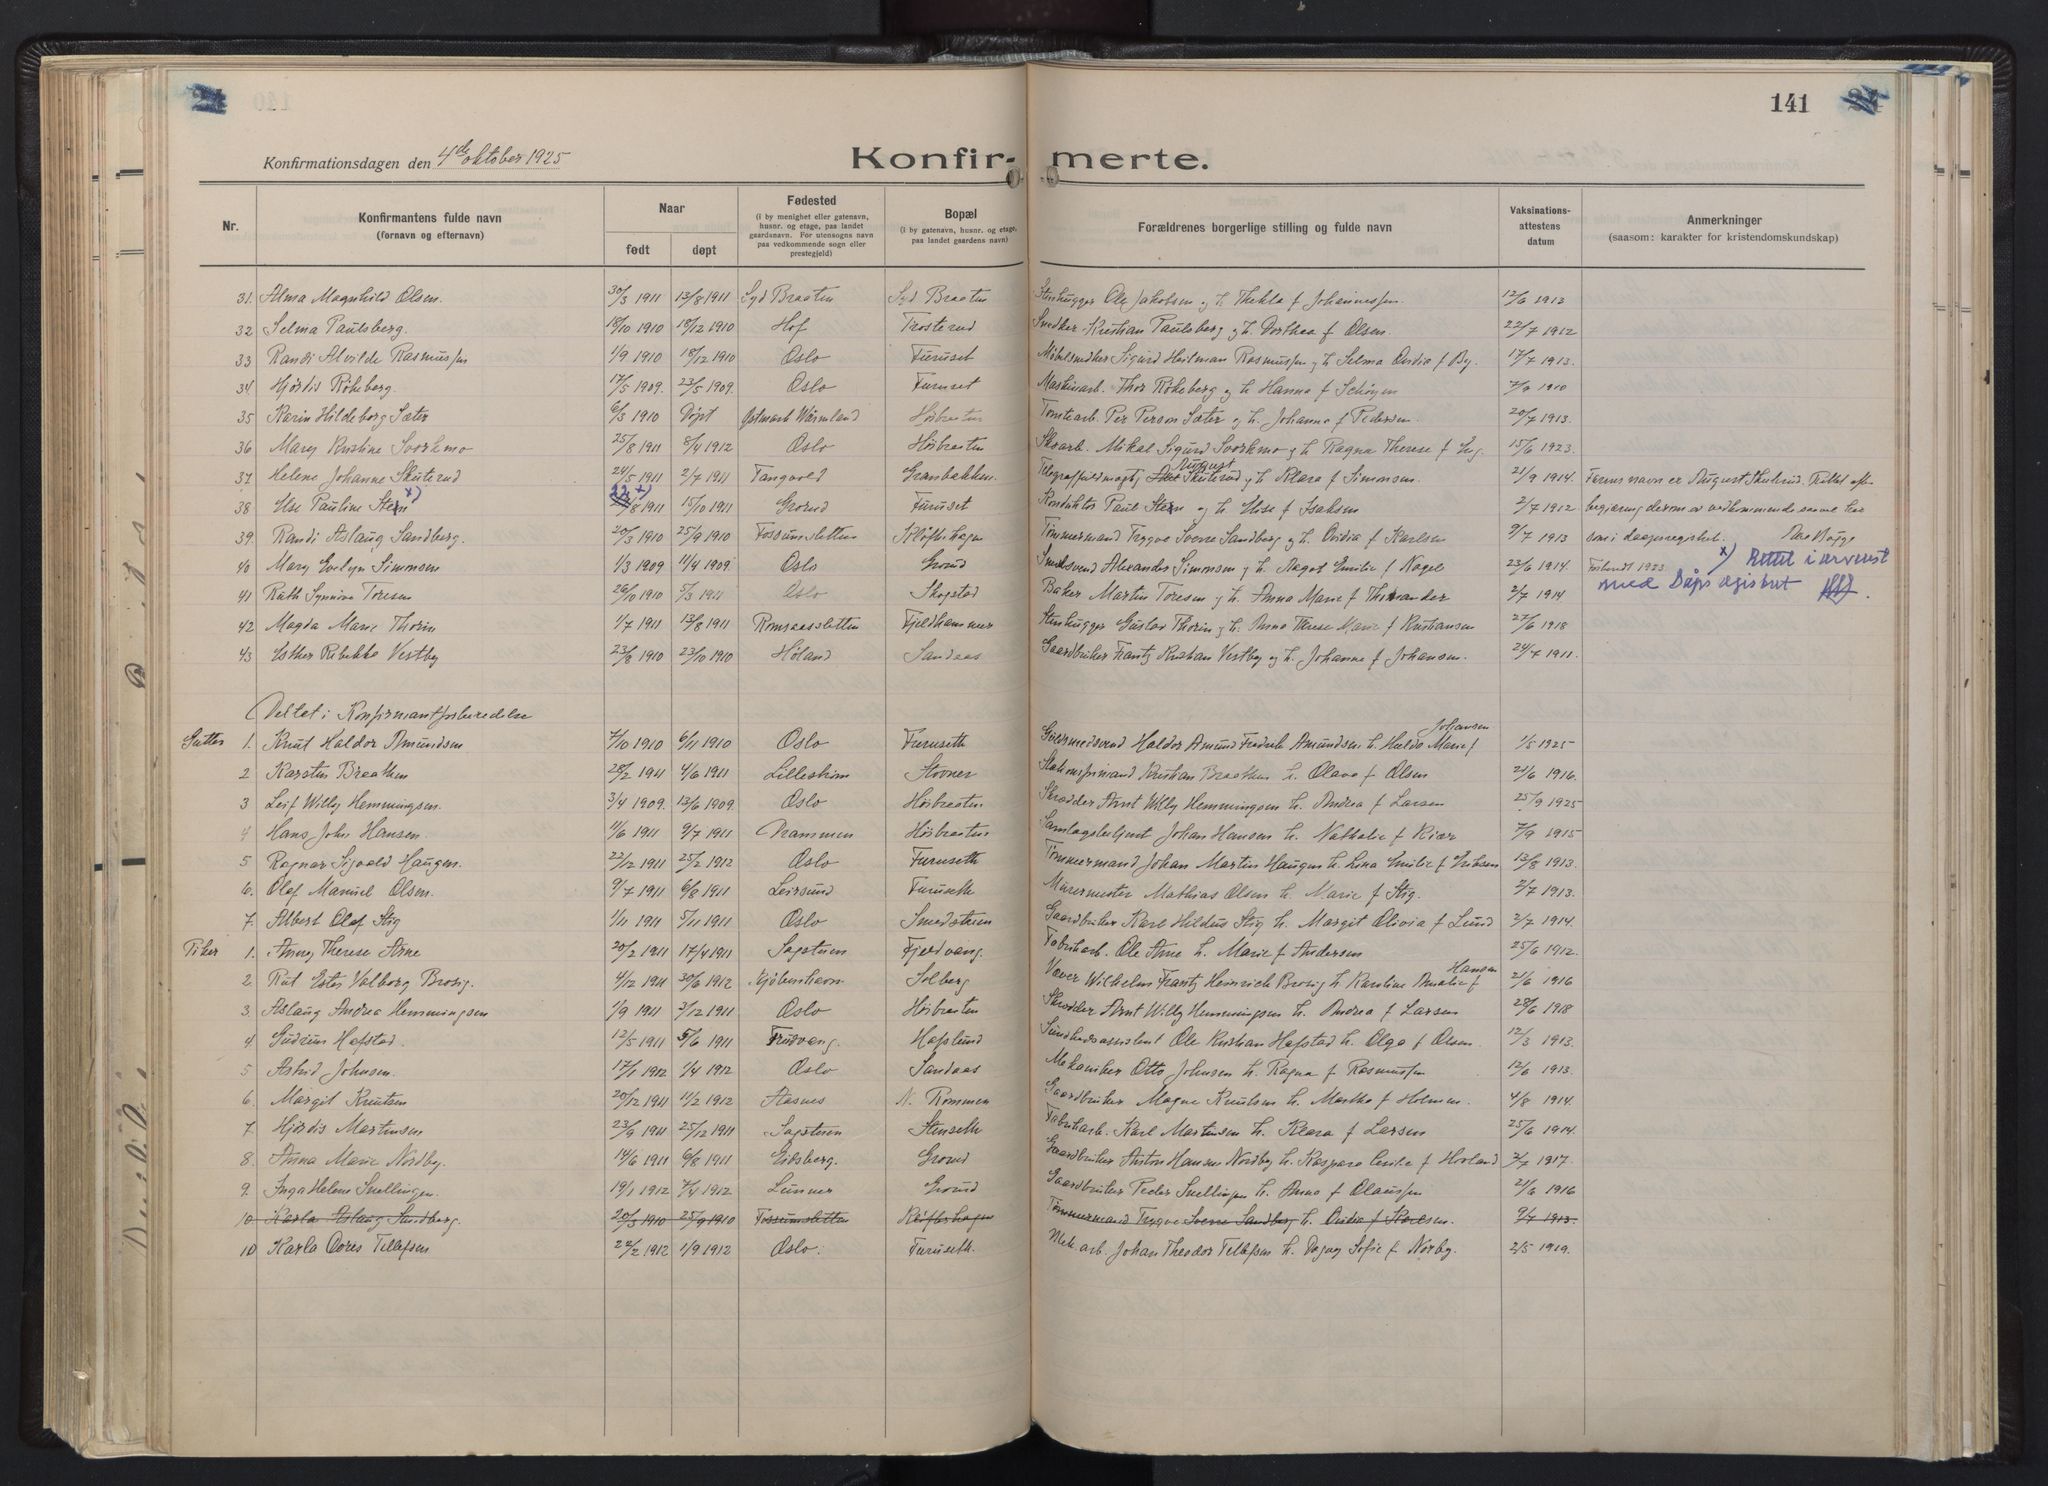 141
Konfirmationsdagen den 4de oktober 1925
Konfir- merte.
Nr.
Konfirmantens fulde navn
(fornavn og efternavn)
Naar
født
døpt
Fødested
(i by menighet eller gatenavn, husnr. og etage, paa landet gaardsnavn. For utensogns navn paa vedkommende sogn eller prestegjeld)
Bopæl
(i by gatenavn, husnr. og etage, paa landet gaardens navn)
Forældrenes borgerlige stilling og fulde navn
Vaksinations-attestens datum
Anmerkninger
(saasom: karakter for kristendomskundskap)
31. Alma Magnhild Olsen. 30/3 1911 13/8 1911 Syd Braaten Syd Braaten Stenhugger Ole Jakobsen og h. Thekla f Johannessen. 12/6 1913
32 Selma Paulsberg. 18/10 1910 18/12 1910 Hof Trosterud Snedker Kristian Paulsberg og h. Dorthea f Olsen. 22/7 1912
33 Randi Alvilde Rasmussen 1/9 1910 18/12 1910 Oslo Furuset Møbelsnedker Sigurd Heilman Rasmussen og h. Selma Ovidia f By. 17/7 1913.
34. Hjørdis Røkeberg. 17/5 1909. 23/5 1909. Oslo Furuset Maskinarb. Thor Røkeberg og h. Hanna f 7/9 1910
35 Karin Hildeborg Sæter 6/3 1910 Døpt Østmark Wärmland Høibraaten Tomtearb. Per Person Sæter og h. Johanna f Pedersen. 20/7 1913.
36 Mary Kristine Svorkmo 25/8 1911 8/4 1912 Oslo Høibraaten Skoarb. Mikal Sigurd Svorkmo og h. Ragna Therese f Eng. 15/6 1923.
37 Helene Johanne Skuterud 24/5 1911 2/7 1911 Tangvold Granbakken. Telegrafuldmægtig August Skuterud og h. Klara f Simonsen. 21/9 1914. Farens navn er August Skuterud. Rettet eft-
38 Else Pauline Stern x) 22 x)/8 1911 15/10 1911 Grorud Furuset Konduktør Paul Stern og h. Else f Isaksen 2/7 1912 begjæring derom av vedkommende samme har
39. Randi Aslaug Sandberg. 20/3 1910 25/9 1910 Fossumsletten Kløfterhagen Tømmermand Trygve Sverre Sandberg og h. Ovidia f Karlsen 9/7 1913 som i daapsregistret.
40 Mary Evelyn Simonsen 1/3 1909 11/4 1909 Oslo Grorud Smedsvend Alexander Simonsen og h. Ragot Emilie f Nagel 23/6 1914. Forberedt 1923. x) Rettet i overenst
41 Ruth Synnøve Toresen 26/10 1910 5/3 1911 Oslo Skogstad Baker Martin Toresen og h. Anna Marie f Thorander 2/7 1914 med Dåpsregistret
42 Magda Marie Thorin 1/7 1911 13/8 1911 Romsaassletten Fjeldhammer Stenhugger Gustav Thorin og h. Anna Therese Marie f Kristiansen 27/6 1918
43 Esther Rebekka Vestby 23/8 1910 23/10 1910 Høland Sandaas Gaardbruker Frantz Kristian Vestby og h. Johanne f Johansen. 24/7 1911.
Deltat i Konfirmantforberedelse
Gutter 1. Knut Haldor Amundsen 7/10 1910 6/11 1910 Oslo Furuseth Guldsmedsvend Haldor Amund Fredrik Amundsen h. Halda Marie f Johansen 1/5 1925
2 Karsten Braathen 28/2 1911 4/6 1911 Lillestrøm Stovner Stationsformand Kristian Braathen h. Olava f Olsen 21/6 1916.
3 Leif Willy Hemmingsen. 3/4 1909. 13/6 1909. Oslo Høibraaten Skrædder Arnt Willy Hemmingsen h. Andrea f Larsen 25/9 1925
4 Hans John Hansen. 11/6 1911 9/7 1911 Drammen Høibraaten Samlagsbetjent Johan Hansen h. Nathalie f Kiær 7/9 1915
5 Ragnar Sigvald Haugen. 22/12 1911 25/2 1912 Oslo Furuseth Tømmermand Johan Martin Haugen h. Lina Emilie f Eriksen 13/8 1913.
6. Olaf Manuel Olsen. 9/7 1911 6/8 1911 Leirsund Furuseth Murermester Mathias Olsen h. Marie f Stig. 2/7 1913.
7. Albert Olaf Stig 1/11 1911 5/11 1911 Oslo Smedstuen Gaardbruker Karl Hildus Stig h. Margit Olivia f Lund 2/7 1914.
Piker 1. Anny Therese Arne 20/2 1911 17/4 1911 Sagstuen Fjeldvang. Fabrikarb. Ole Arne h. Marie f Andersen 25/6 1912.
2. Rut Ester Valborg Brosig. 4/12 1911 30/6 1912 Kjøbenhavn Solberg Væver Wilhelm Frantz Heinrich Brosig h. Karoline Amalie f Hansen 21/6 1916
3. Aslaug Andrea Hemmingsen 1/9 1911 3/12 1911 Oslo Høibraaten Skrædder Arnt Willy Hemmingsen h. Andrea f Larsen 28/6 1918
4. Gudrun Hafstad. 12/5 1911 5/6 1911 Trudvang. Hafslund Sundhedsassistent Ole Kristian Hafstad h. Olga f Olsen. 12/3 1913.
5 Astrid Johnsen. 17/1 1912 1/4 1912 Oslo Sandaas Mekaniker Otto Johnsen h. Ragna f Rasmussen 12/6 1913.
6. Margit Knutsen 20/12 1911 11/2 1912 Aasnes N. Rommen Gaardbruker Magne Knutsen h. Martha f Holmen. 4/8 1914.
7. Hjørdis Martinsen 23/9 1911 25/12 1911 Sagstuen Stenseth Fabrikarb. Karl Martinsen h. Klara f Larsen 25/6 1914.
8. Anna Marie Nordby. 14/6 1911 6/8 1911 Eidsberg. Grorud Gaardbruker Anton Hansen Nordby h. Kaspara Cecilie f Horland 2/7 1917.
9. Inga Helene Snellingen. 19/1 1912 7/4 1912 Lunner Grorud Gaardbruker Peder Snellingen h. Anna f Olaussen 21/6 1916
10 Karla Aslaug Sandberg. 20/3 1910 25/9 1910 Fossumsletten Kløfterhagen Tømmermand Trygve Sverre Sandberg h. Ovidia f Karlsen. 9/7 1913.
10 Karla Dores Tellefsen 22/2 1912 1/9 1912 Oslo. Furuseth. Mek. arb. Johan Theodor Tellefsen h. Dagny Sofie f Norby. 2/5 1919.